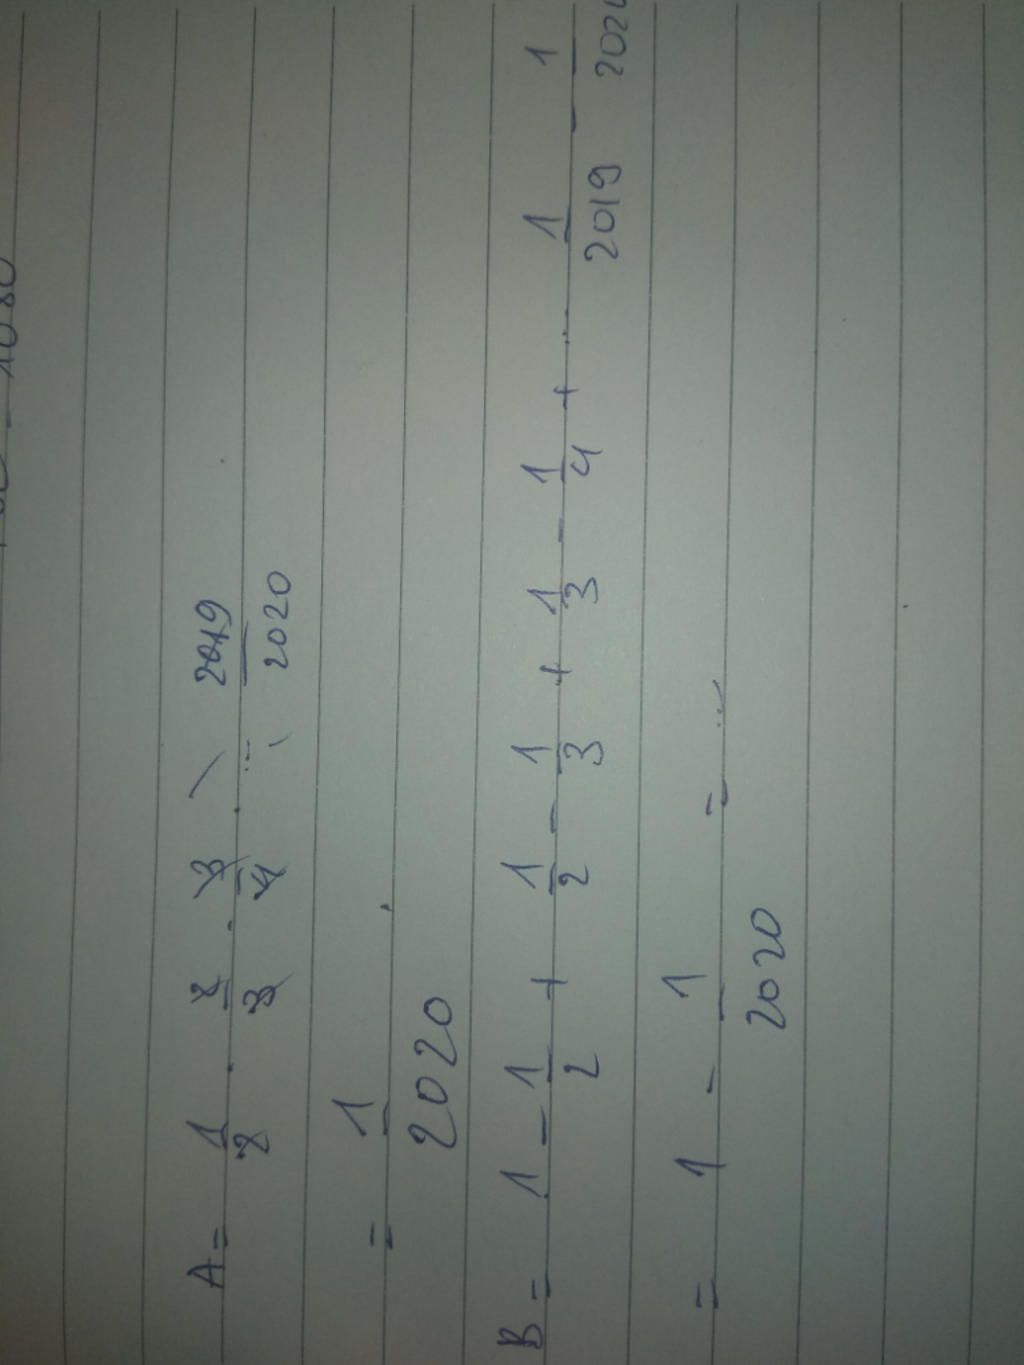 A = 1/2 . 2/3 . 3/4 . ... . 2019/2020
= 1/2020 .
B = 1 - 1/2 + 1/2 - 1/3 + 1/3 - 1/4 + ... 1/2019 - 1/2020
= 1 - 1/2020 = ...